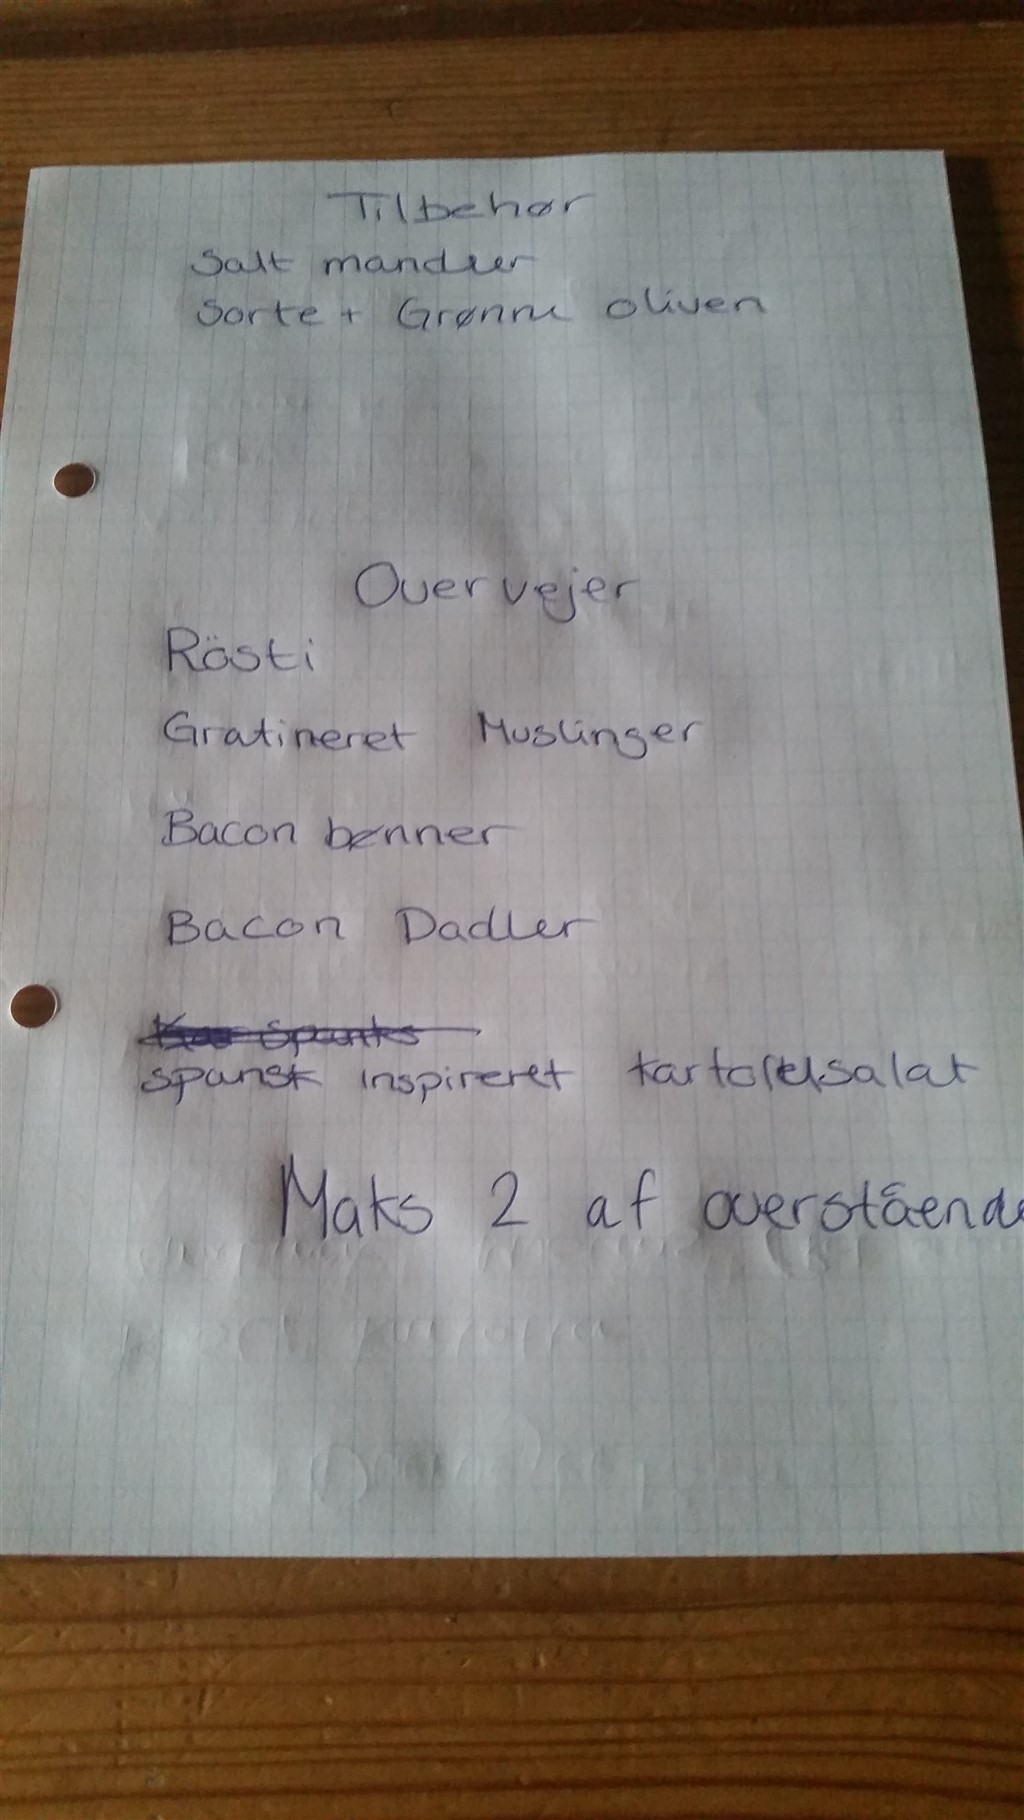 Tilbehør
Salt mandler
Sorte + Grønne oliven
Overvejer
Rösti
Gratineret Muslinger
Bacon bønner
Bacon Dadler
Spansk inspireret kartoffelsalat
Maks 2 af overstående